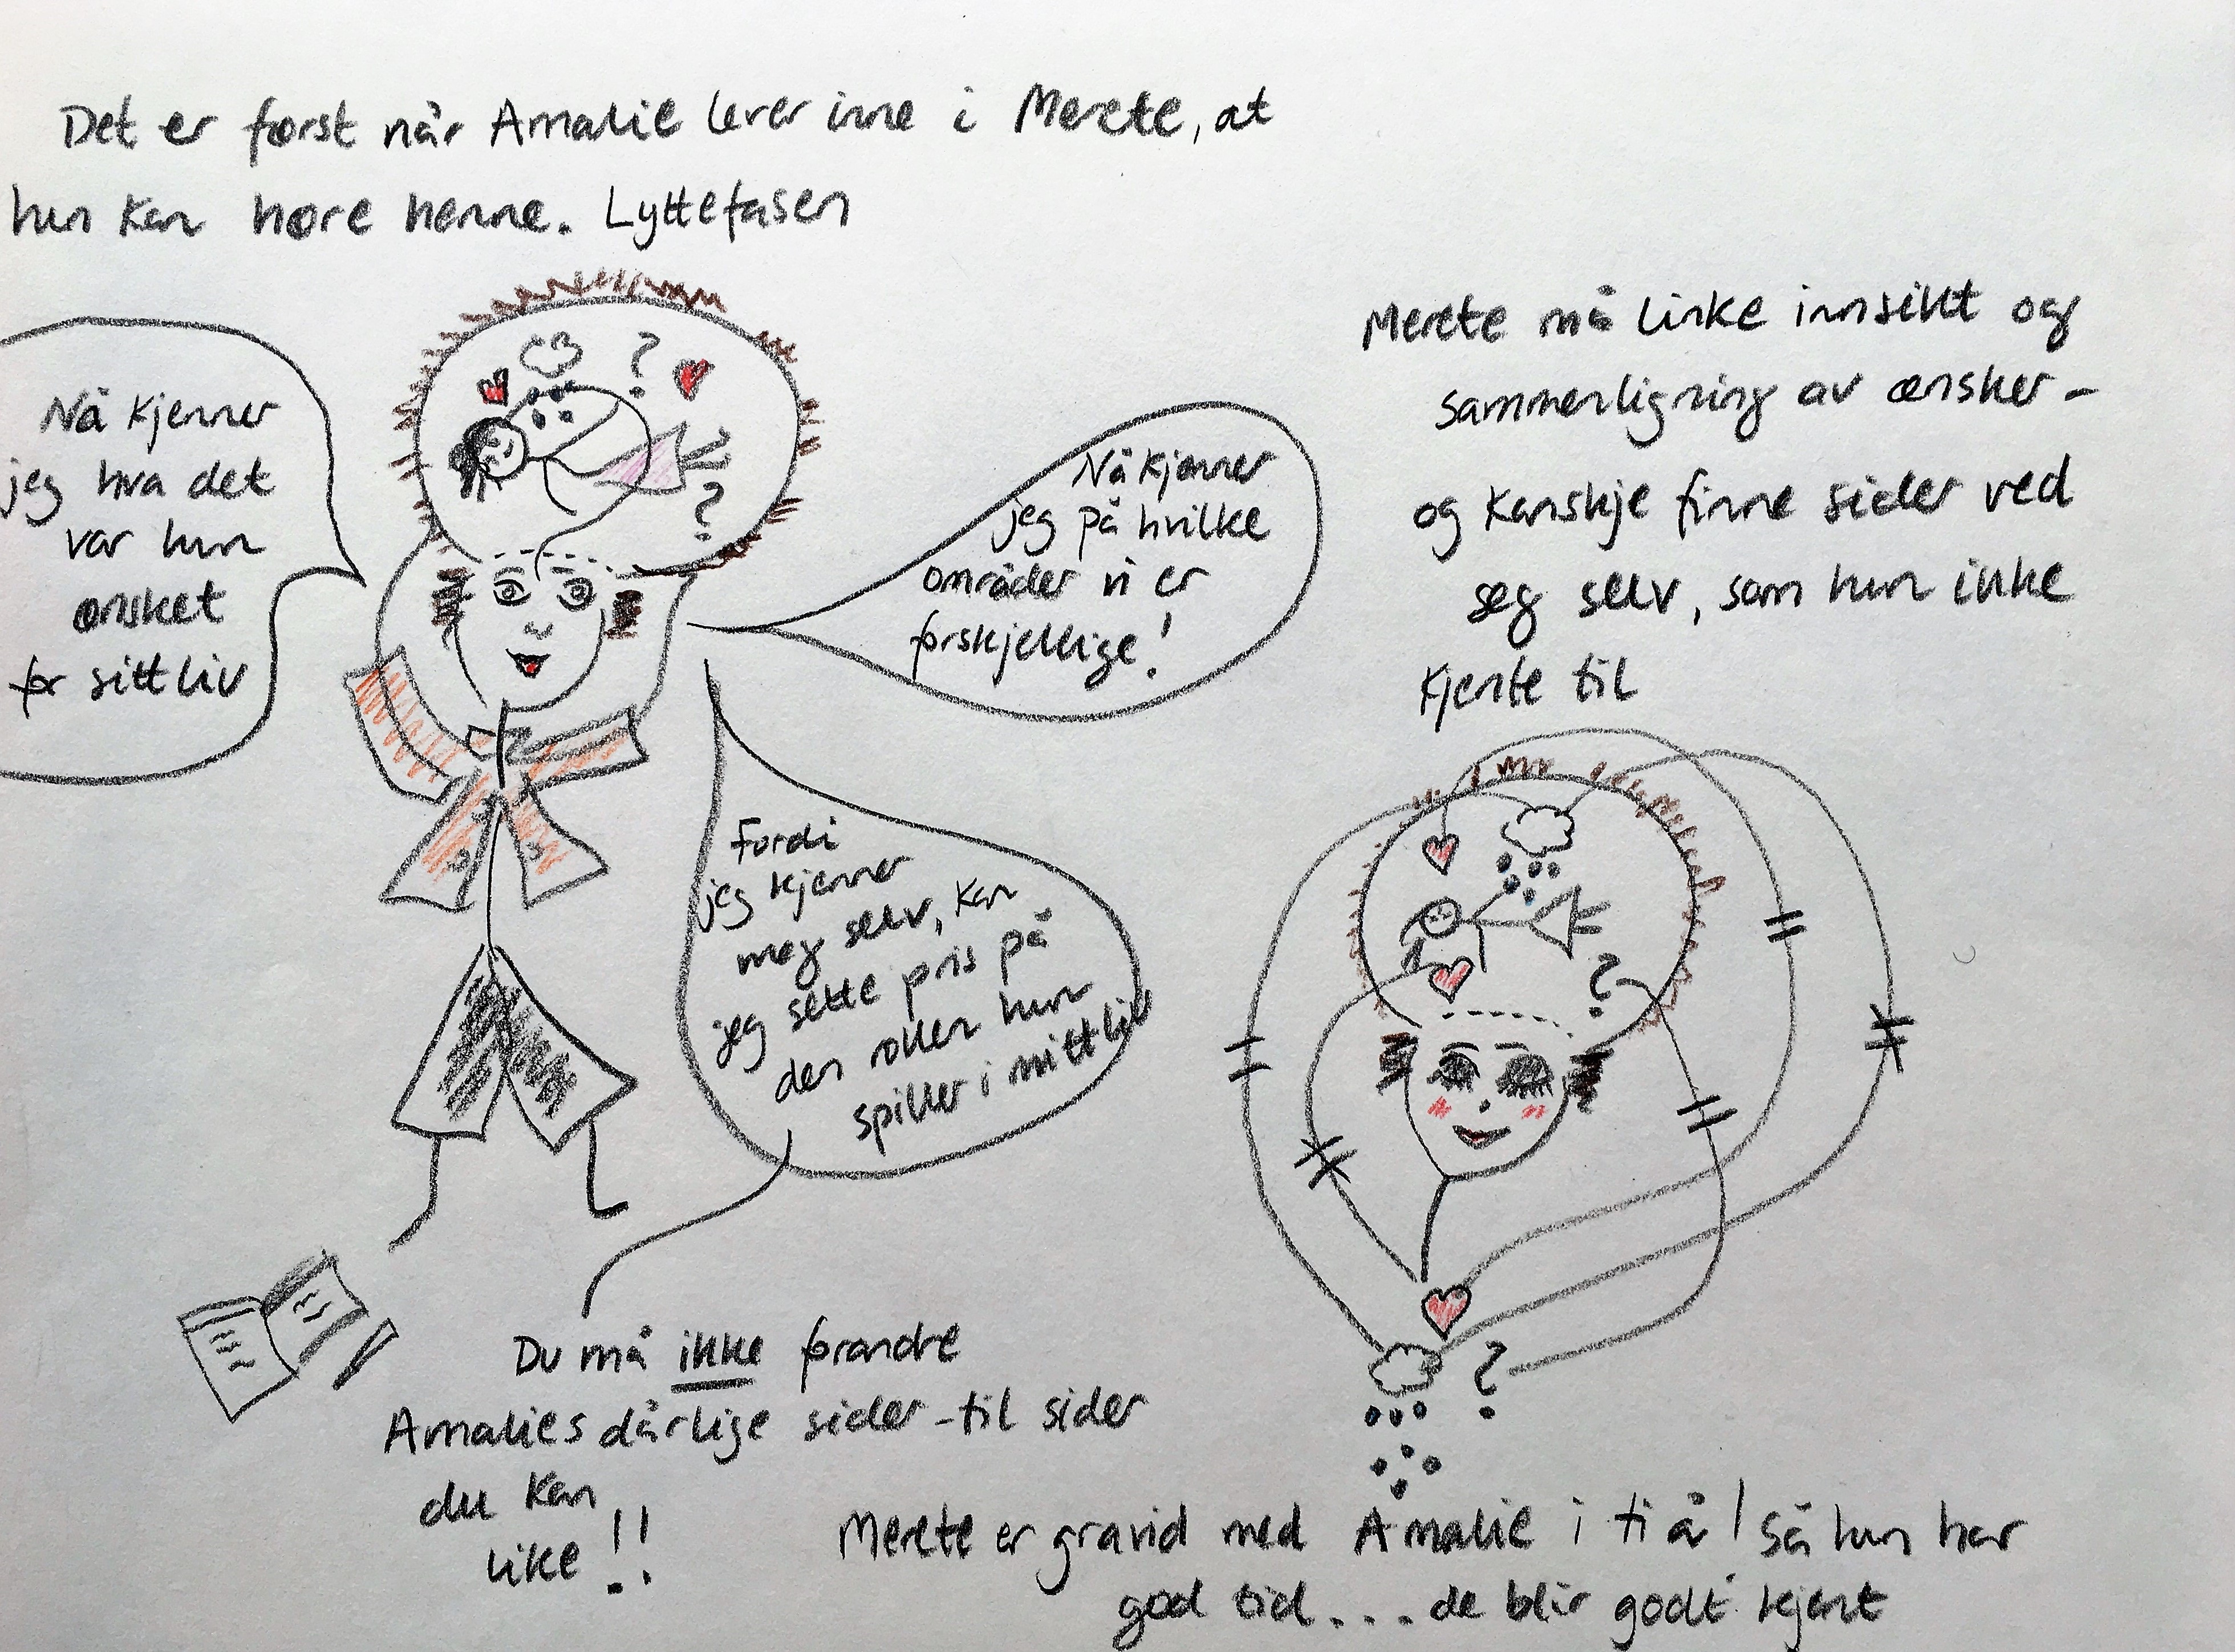 Det er først når Amalie lever inne i Merete, at
hun kan høre henne. Lyttefasen
Nå kjenner
jeg hva det
var hun
ønsket
for sitt liv
Nå kjenner
jeg på hvilke
områder vi er
forskjellige!
Merete må linke innsikt og
sammenligning av ønsker -
og kanskje finne sider ved
seg selv, som hun ikke
kjente til
Fordi
jeg kjenner
meg selv, kan
jeg sette pris på
den rollen hun
spiller i mitt liv
?
?
?
?
Du må ikke forandre
Amalies dårlige sider - til sider
du kan
like!!
Merete er gravid med Amalie i ti å! Så hun har
god tid.... de blir godt kjent